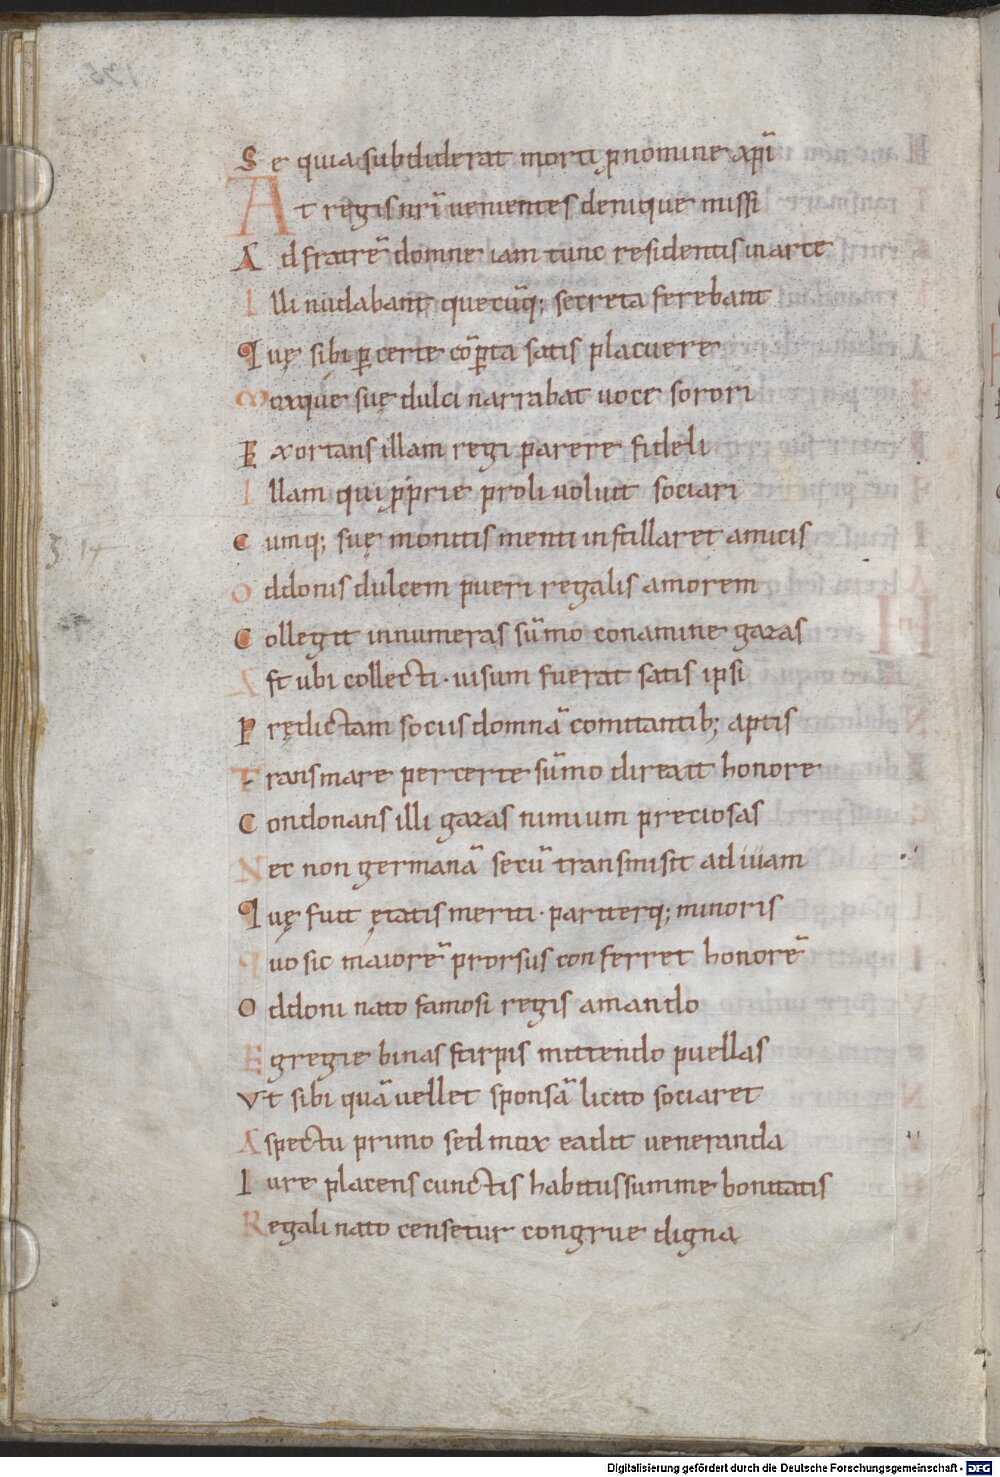 Se quia subdiderat morti ꝑ nomine xp̄i
At regis nr̄i uenientes denique missi
Ad fratrē domne iam tunc residentis in arce
Illi nudabant quecūq; secreta ferebant
Quę sibi ꝑ certe cōꝑta satis placuere
Moxque suę dulci narrabat uoce sorori
Exortans illam regi parere fideli
Illam qui ꝓprie proli uoluit sociari
Cumq; suę monitis menti instillaret amicis
Oddonis dulcem pueri regalis amorem
Collegit innumeras sūmo conamine gazas
Ast ubi collecti · uisum fuerat satis ipsi
Prędictam sociis domnā comitantib; aptis
Trans mare per certe sūmo direxit honore
Condonans illi gazas nimium preciosas
Nec non germanā secū transmisit adiuam
Quę fuit ętatis meriti · pariterq; minoris
Quo sic maiorē prorsus conferret honorē
Oddoni nato famosi regis amando
Egregie binas stirpis mittendo puellas
Vt sibi quā uellet sponsā licito sociaret
Aspectu primo sed mox eadit ueneranda
Iure placens cunctis habitus summe bonitatis
Regali nato censetur congrue digna
Digitalisierung gefördert durch die Deutsche Forschungsgemeinschaft - DFG